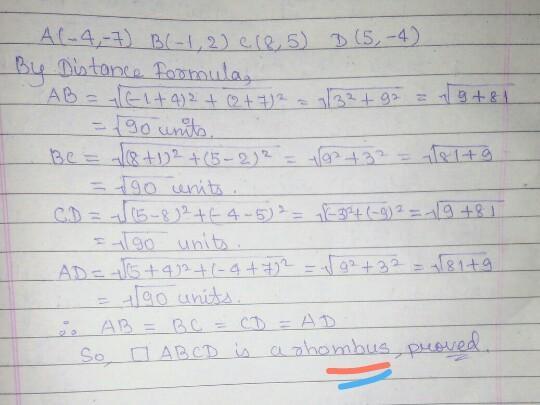 A(-4,-7) B(-1,2) C(8,5) D(5,-4)
By Distance Formula,
AB = √(-1+4)² + (2+7)² = √3² + 9² = √9+81
= √90 units.
BC = √(8+1)² + (5-2)² = √9²+3² = √81+9
= √90 units.
CD = √(5-8)² + (-4-5)² = √(-3)²+(-9)² = √9+81
= √90 units.
AD = √(5+4)² + (-4+7)² = √9²+3² = √81+9
= √90 units.
∴ AB = BC = CD = AD
So, □ ABCD is a rhombus, proved.